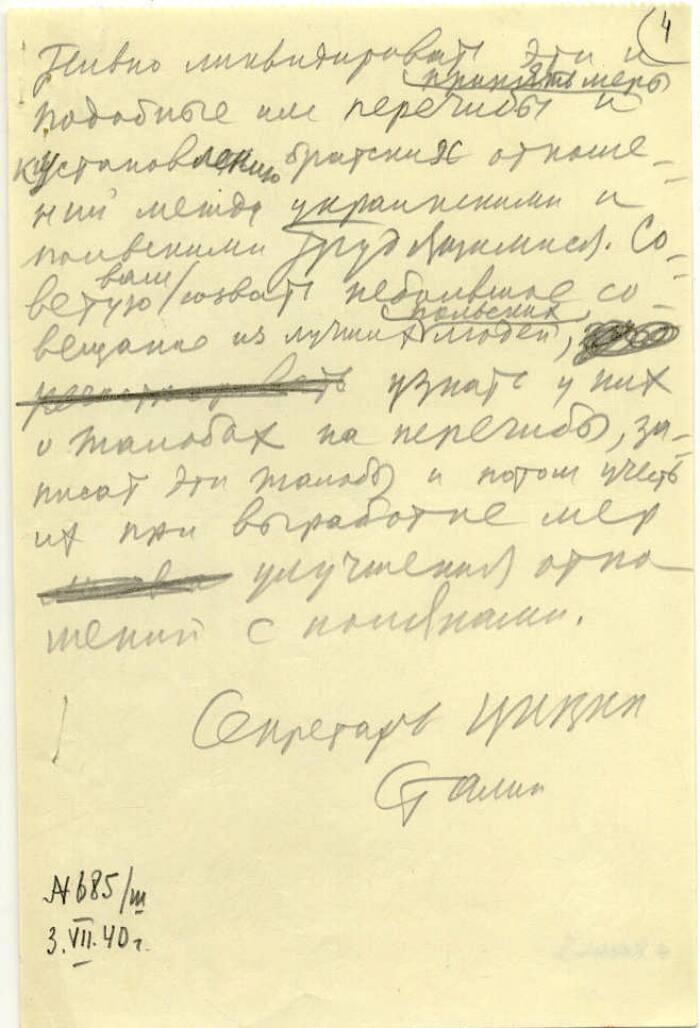 4
тивно ликвидировать эти и
принять меры
подобные им перегибы и
к установлению братских отноше-
ний между украинскими и
польскими трудящимися. Со-
вам
ветую созвать небольшое со-
польских
вещание из лучших людей,
узнать у них
о жалобах на перегибы, за-
писат эти жалобы и потом учесть
их при выработке мер
улучшения отно
шений с поляками.
Секретарь ЦК ВКП
Сталин
№ 685/ш
3.VII.40 г.